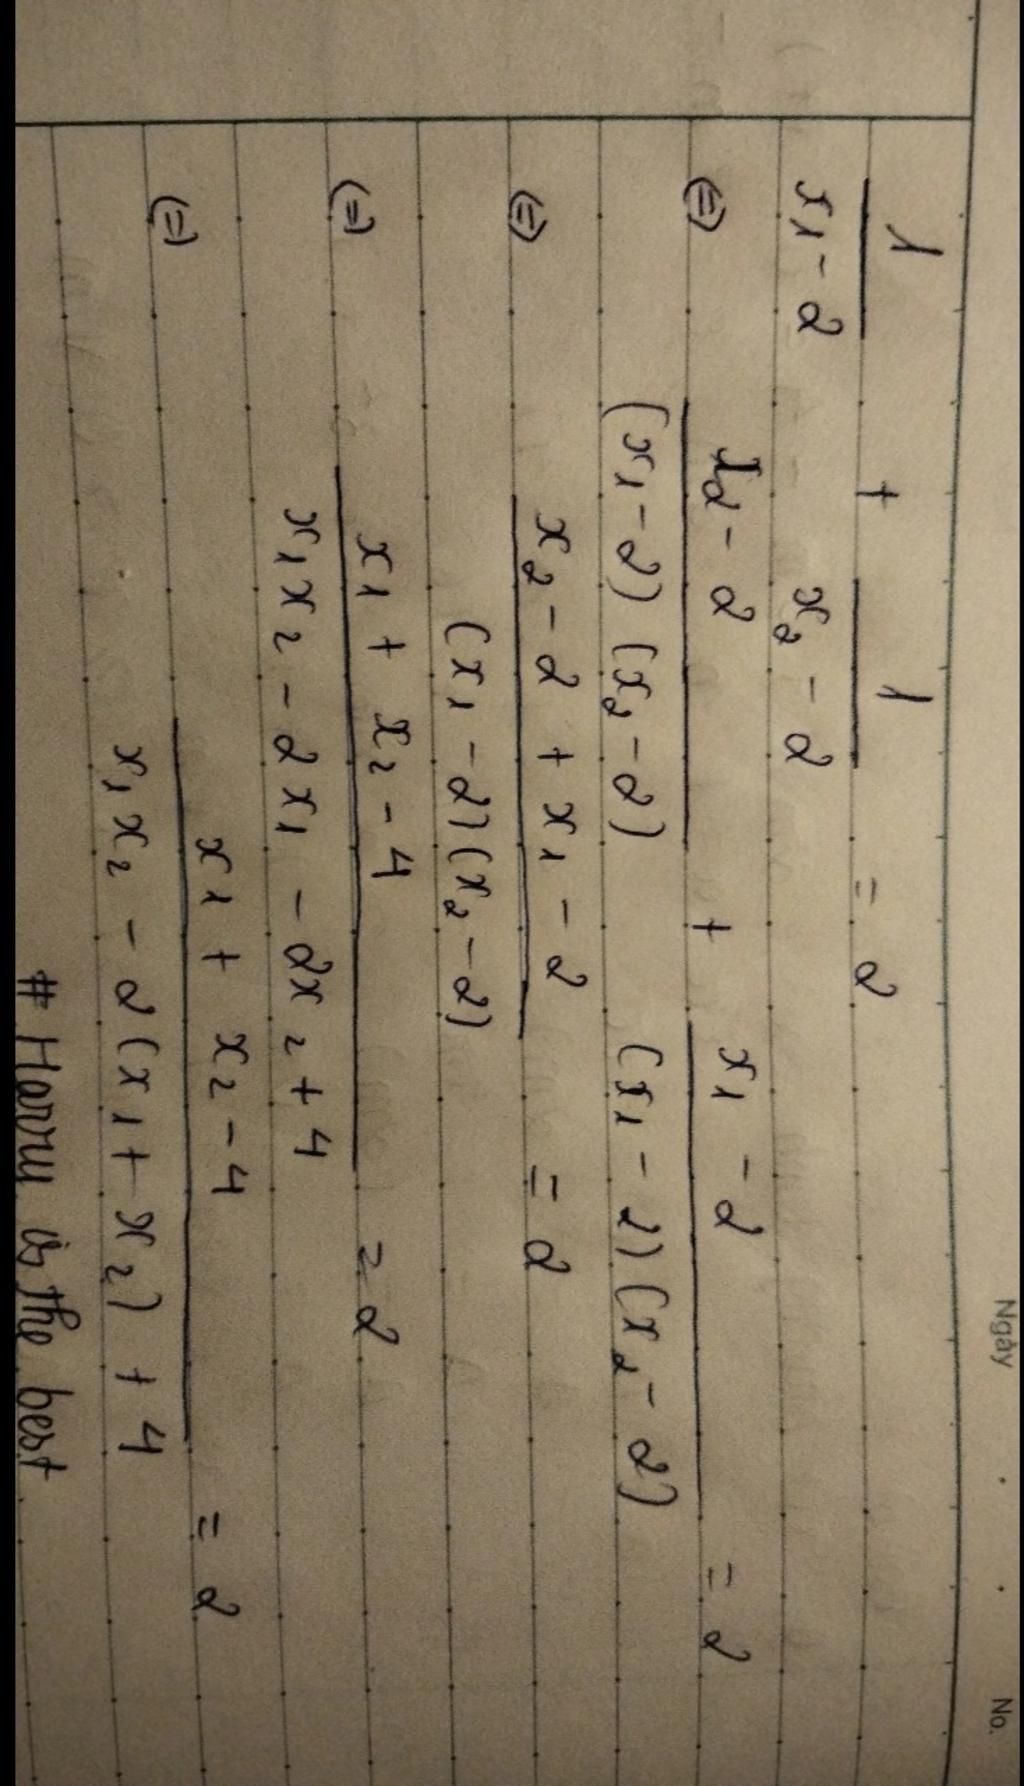 Ngày No.
1/(x₁ - 2) + 1/(x₂ - 2) = 2
(=) (x₂ - 2)/((x₁ - 2) (x₂ - 2)) + (x₁ - 2)/((x₁ - 2)(x₂ - 2)) = 2
(=) (x₂ - 2 + x₁ - 2)/((x₁ - 2)(x₂ - 2)) = 2
(=) (x₁ + x₂ - 4)/(x₁x₂ - 2x₁ - 2x₂ + 4) = 2
(=) (x₁ + x₂ - 4)/(x₁x₂ - 2(x₁ + x₂) + 4) = 2
is the best